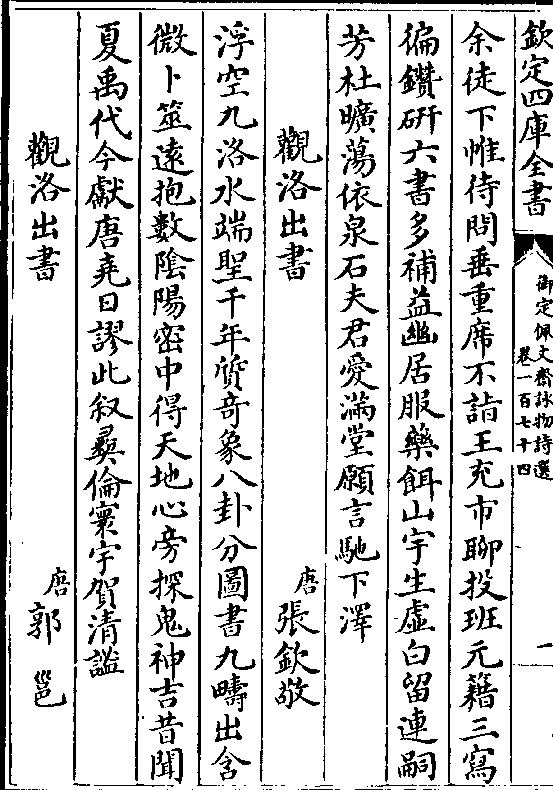 欽定四庫全書
御定佩文齋詠物詩選
卷一百七十四
一
余徒下帷待問垂重席不詣王充市聊投班元籍三寫
徧鑽研六書多補益幽居服藥餌山宇生虛白留連嗣
芳杜曠蕩依泉石夫君愛滿堂願言馳下澤
觀洛出書
唐 張欽敬
浮空九洛水瑞聖千年質奇象八卦分圖書九疇出含
微卜筮遠抱數陰陽密中得天地心旁探鬼神吉昔聞
夏禹代今獻唐堯日謬此叙彝倫寰宇賀清謐
觀洛出書
唐 郭邕